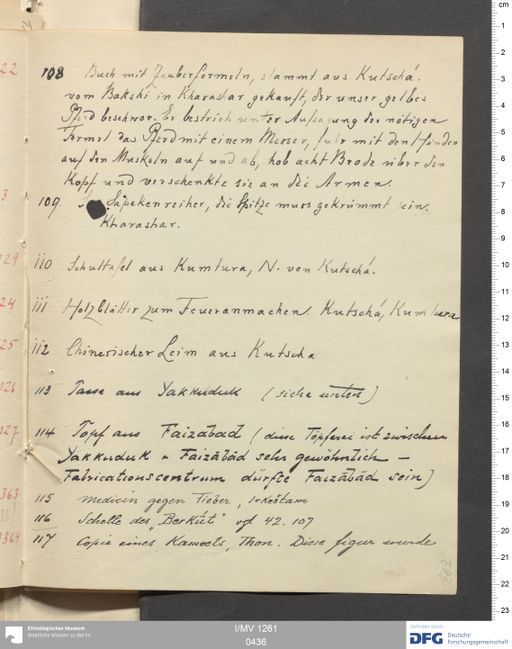 108 Buch mit Zauberformeln, stammt aus Kutschá.
vom Bakshi in Kharashar gekauft, der unser gelbes
Pferd beschwor. Er bestrich unter Aufsagung der nötigen
Formel das Pferd mit einem Messer, fuhr mit den Händen
auf den Muskeln auf und ab, hob acht Brode über den
Kopf und verschenkte sie an die Armen.
109 Säpekenreiher, die Spitze muss gekrümmt sein.
Kharashar.
110 Schultafel aus Kumtura, N. von Kutschá.
111 Holzblätter zum Feueranmachen. Kutschá, Kumtura
112 Chinesischer Leim aus Kutscha
113 Tasse aus Yakkuduk (siehe unten)
114 Topf aus Faizabad (diese Töpferei ist zwischen
Yakkuduk u Faizābād sehr gewöhnlich –
Fabricationscentrum dürfte Faizābād sein)
115 Medicin gegen Fieber, Irkeštam
116 Schelle des „Berkūt" vgl 42. 107
117 Copie eines Kameels, Thon. Diese figur wurde
22
3
129
24
25
126
127
363
1364
263
cm
1
2
3
4
5
6
7
8
9
10
11
12
13
14
15
16
17
18
19
20
21
22
23
Ethnologisches Museum
Staatliche Museen zu Berlin
I/MV 1261
0436
Gefördert durch
DFG Deutsche
Forschungsgemeinschaft